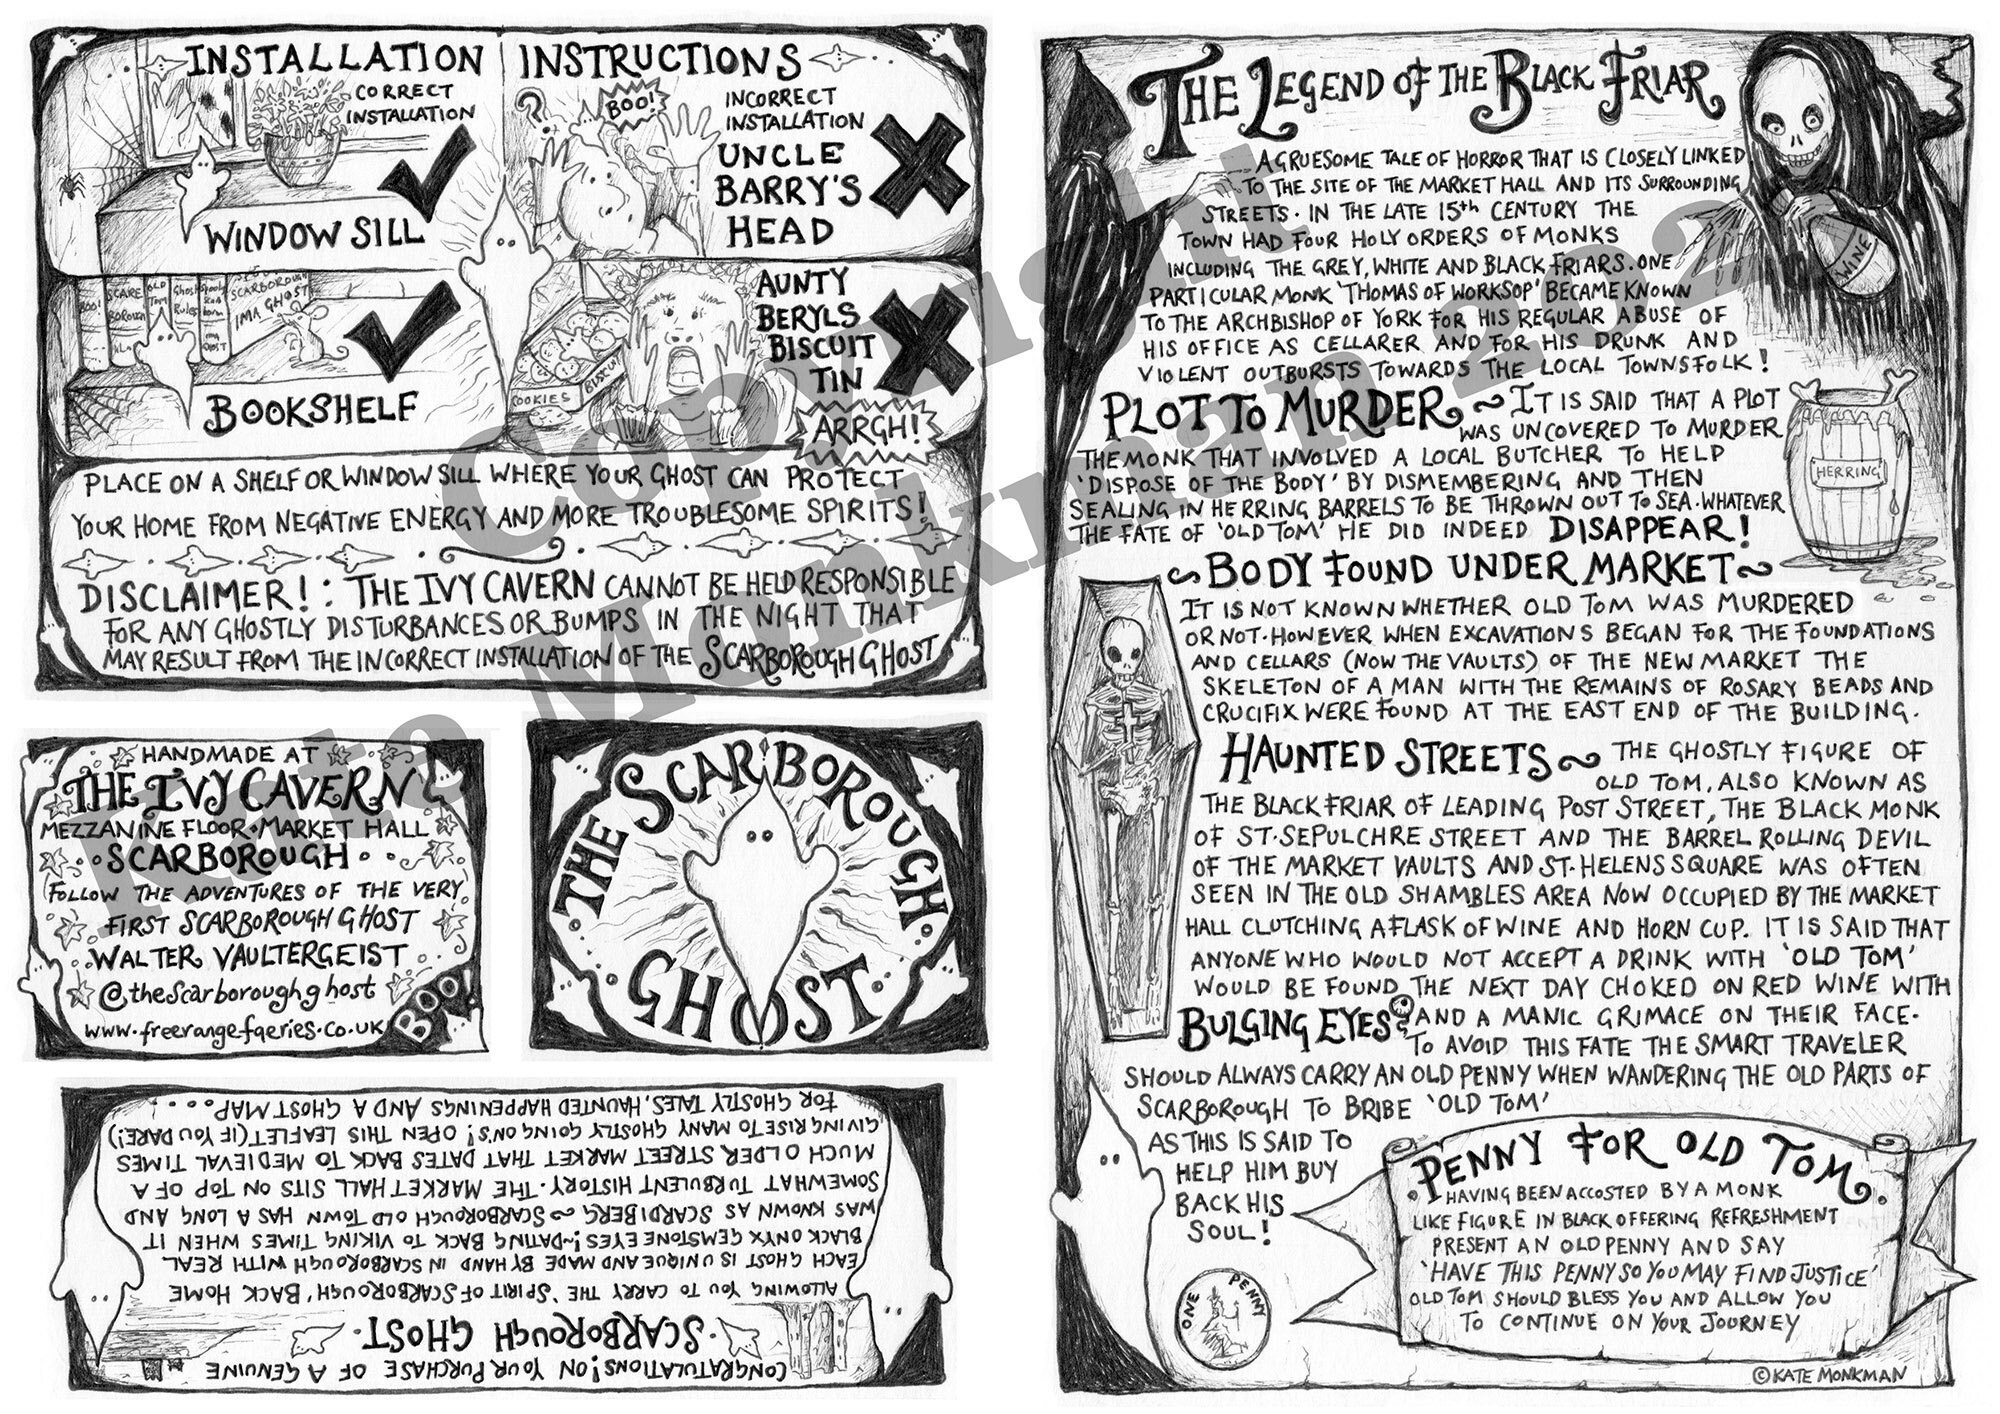 INSTALLATION INSTRUCTIONS
CORRECT
INSTALLATION
WINDOW SILL
?
BOO!
INCORRECT
INSTALLATION
UNCLE
BARRY'S
HEAD
BOO!
SCARE
BOROUGH
OLD
TOM
GHOST
RULES
SCARBOROUGH
IMA GHOST
BOOKSHELF
COOKIES
AUNTY
BERYLS
BISCUIT
TIN
ARRGH!
PLACE ON A SHELF OR WINDOW SILL WHERE YOUR GHOST CAN PROTECT
YOUR HOME FROM NEGATIVE ENERGY AND MORE TROUBLESOME SPIRITS!
DISCLAIMER!: THE IVY CAVERN CANNOT BE HELD RESPONSIBLE
FOR ANY GHOSTLY DISTURBANCES OR BUMPS IN THE NIGHT THAT
MAY RESULT FROM THE INCORRECT INSTALLATION OF THE SCARBOROUGH GHOST
HANDMADE AT
THE IVY CAVERN
MEZZANINE FLOOR • MARKET HALL
SCARBOROUGH
FOLLOW THE ADVENTURES OF THE VERY
FIRST SCARBOROUGH GHOST
WALTER VAULTERGEIST
@thescarboroughghost
www.freerangefaeries.co.uk
BOO!
THE SCARBOROUGH
GHOST
CONGRATULATIONS! ON YOUR PURCHASE OF A GENUINE
SCARBOROUGH GHOST
ALLOWING YOU TO CARRY THE 'SPIRIT OF SCARBOROUGH', BACK HOME
EACH GHOST IS UNIQUE AND MADE BY HAND IN SCARBOROUGH WITH REAL
BLACK ONYX GEMSTONE EYES! ~ DATING BACK TO VIKING TIMES WHEN IT
WAS KNOWN AS SCARDIBERG ~ SCARBOROUGH OLD TOWN HAS A LONG AND
SOMEWHAT TURBULENT HISTORY. THE MARKET HALL SITS ON TOP OF A
MUCH OLDER STREET MARKET THAT DATES BACK TO MEDIEVAL TIMES
GIVING RISE TO MANY GHOSTLY GOING ON'S! OPEN THIS LEAFLET (IF YOU DARE!)
FOR GHOSTLY TALES, HAUNTED HAPPENINGS AND A GHOST MAP....
THE LEGEND OF THE BLACK FRIAR
A GRUESOME TALE OF HORROR THAT IS CLOSELY LINKED
TO THE SITE OF THE MARKET HALL AND ITS SURROUNDING
STREETS. IN THE LATE 15th CENTURY THE
TOWN HAD FOUR HOLY ORDERS OF MONKS
INCLUDING THE GREY, WHITE AND BLACK FRIARS. ONE
PARTICULAR MONK 'THOMAS OF WORKSOP' BECAME KNOWN
TO THE ARCHBISHOP OF YORK FOR HIS REGULAR ABUSE OF
HIS OFFICE AS CELLARER AND FOR HIS DRUNK AND
VIOLENT OUTBURSTS TOWARDS THE LOCAL TOWNSFOLK!
WINE
PLOT TO MURDER ~ IT IS SAID THAT A PLOT
WAS UNCOVERED TO MURDER
THE MONK THAT INVOLVED A LOCAL BUTCHER TO HELP
'DISPOSE OF THE BODY' BY DISMEMBERING AND THEN
SEALING IN HERRING BARRELS TO BE THROWN OUT TO SEA. WHATEVER
THE FATE OF 'OLD TOM' HE DID INDEED DISAPPEAR!
HERRING
~ BODY FOUND UNDER MARKET ~
IT IS NOT KNOWN WHETHER OLD TOM WAS MURDERED
OR NOT. HOWEVER WHEN EXCAVATIONS BEGAN FOR THE FOUNDATIONS
AND CELLARS (NOW THE VAULTS) OF THE NEW MARKET THE
SKELETON OF A MAN WITH THE REMAINS OF ROSARY BEADS AND
CRUCIFIX WERE FOUND AT THE EAST END OF THE BUILDING.
HAUNTED STREETS ~ THE GHOSTLY FIGURE OF
OLD TOM, ALSO KNOWN AS
THE BLACK FRIAR OF LEADING POST STREET, THE BLACK MONK
OF ST. SEPULCHRE STREET AND THE BARREL ROLLING DEVIL
OF THE MARKET VAULTS AND ST. HELENS SQUARE WAS OFTEN
SEEN IN THE OLD SHAMBLES AREA NOW OCCUPIED BY THE MARKET
HALL CLUTCHING A FLASK OF WINE AND HORN CUP. IT IS SAID THAT
ANYONE WHO WOULD NOT ACCEPT A DRINK WITH 'OLD TOM'
WOULD BE FOUND THE NEXT DAY CHOKED ON RED WINE WITH
BULGING EYES AND A MANIC GRIMACE ON THEIR FACE.
TO AVOID THIS FATE THE SMART TRAVELER
SHOULD ALWAYS CARRY AN OLD PENNY WHEN WANDERING THE OLD PARTS OF
SCARBOROUGH TO BRIBE 'OLD TOM'
AS THIS IS SAID TO
HELP HIM BUY
BACK HIS
SOUL!
ONE PENNY
PENNY FOR OLD TOM
HAVING BEEN ACCOSTED BY A MONK
LIKE FIGURE IN BLACK OFFERING REFRESHMENT
PRESENT AN OLD PENNY AND SAY
'HAVE THIS PENNY SO YOU MAY FIND JUSTICE'
OLD TOM SHOULD BLESS YOU AND ALLOW YOU
TO CONTINUE ON YOUR JOURNEY
© KATE MONKMAN
Copyright
Kate Monkman 202